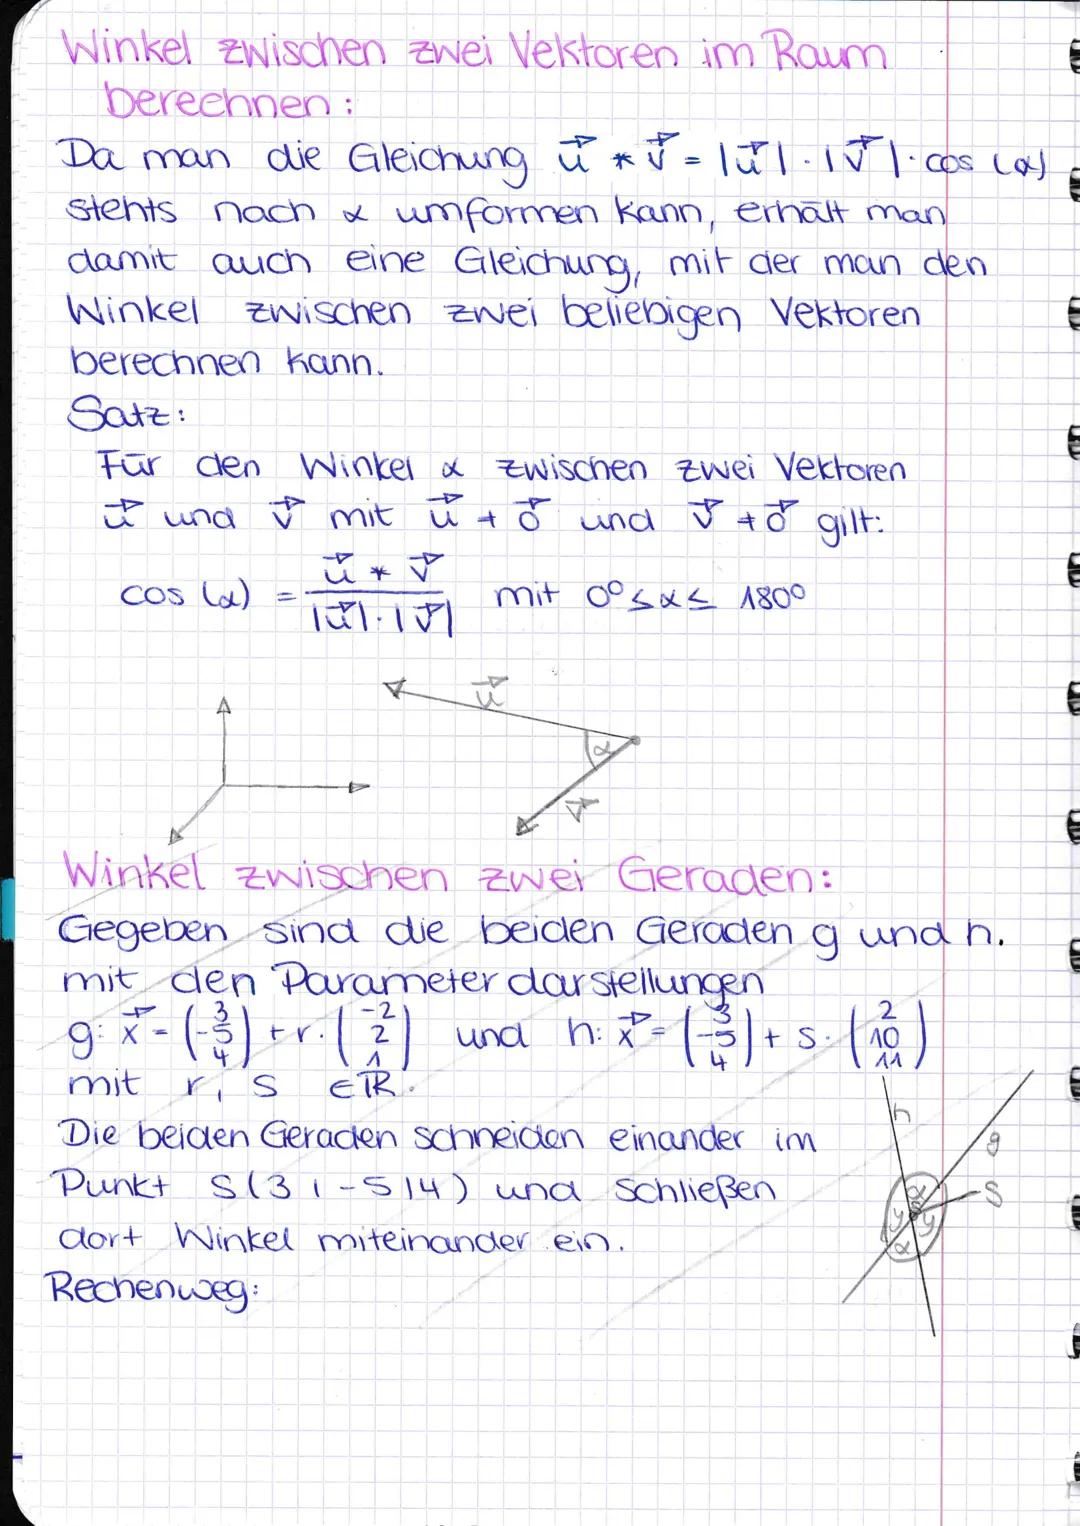 Winkel zwischen zwei Vektoren im Raum
berechnen:
Da man die Gleichung u⃗ * v⃗ = |u⃗| · |v⃗| · cos (α)
stehts nach α umformen kann, erhält man
damit auch eine Gleichung, mit der man den
Winkel zwischen zwei beliebigen Vektoren
berechnen kann.
Satz:
Für den Winkel α zwischen zwei Vektoren
u⃗ und v⃗ mit u⃗ ≠ o⃗ und v⃗ ≠ o⃗ gilt:
cos (α) = (u⃗ * v⃗) / (|u⃗| · |v⃗|) mit 0° ≤ α ≤ 180°
u⃗
α
v⃗
Winkel zwischen zwei Geraden:
Gegeben sind die beiden Geraden g und h.
mit den Parameterdarstellungen
g: x⃗ = (3 -5 4) + r · (-2 2 1) und h: x⃗ = (3 -5 4) + s · (2 10 11)
mit r, s ∈ ℝ.
Die beiden Geraden schneiden einander im
Punkt S(3 | -5 | 4) und schließen
dort Winkel miteinander ein.
Rechenweg:
h
g
S
α
γ
γ
α